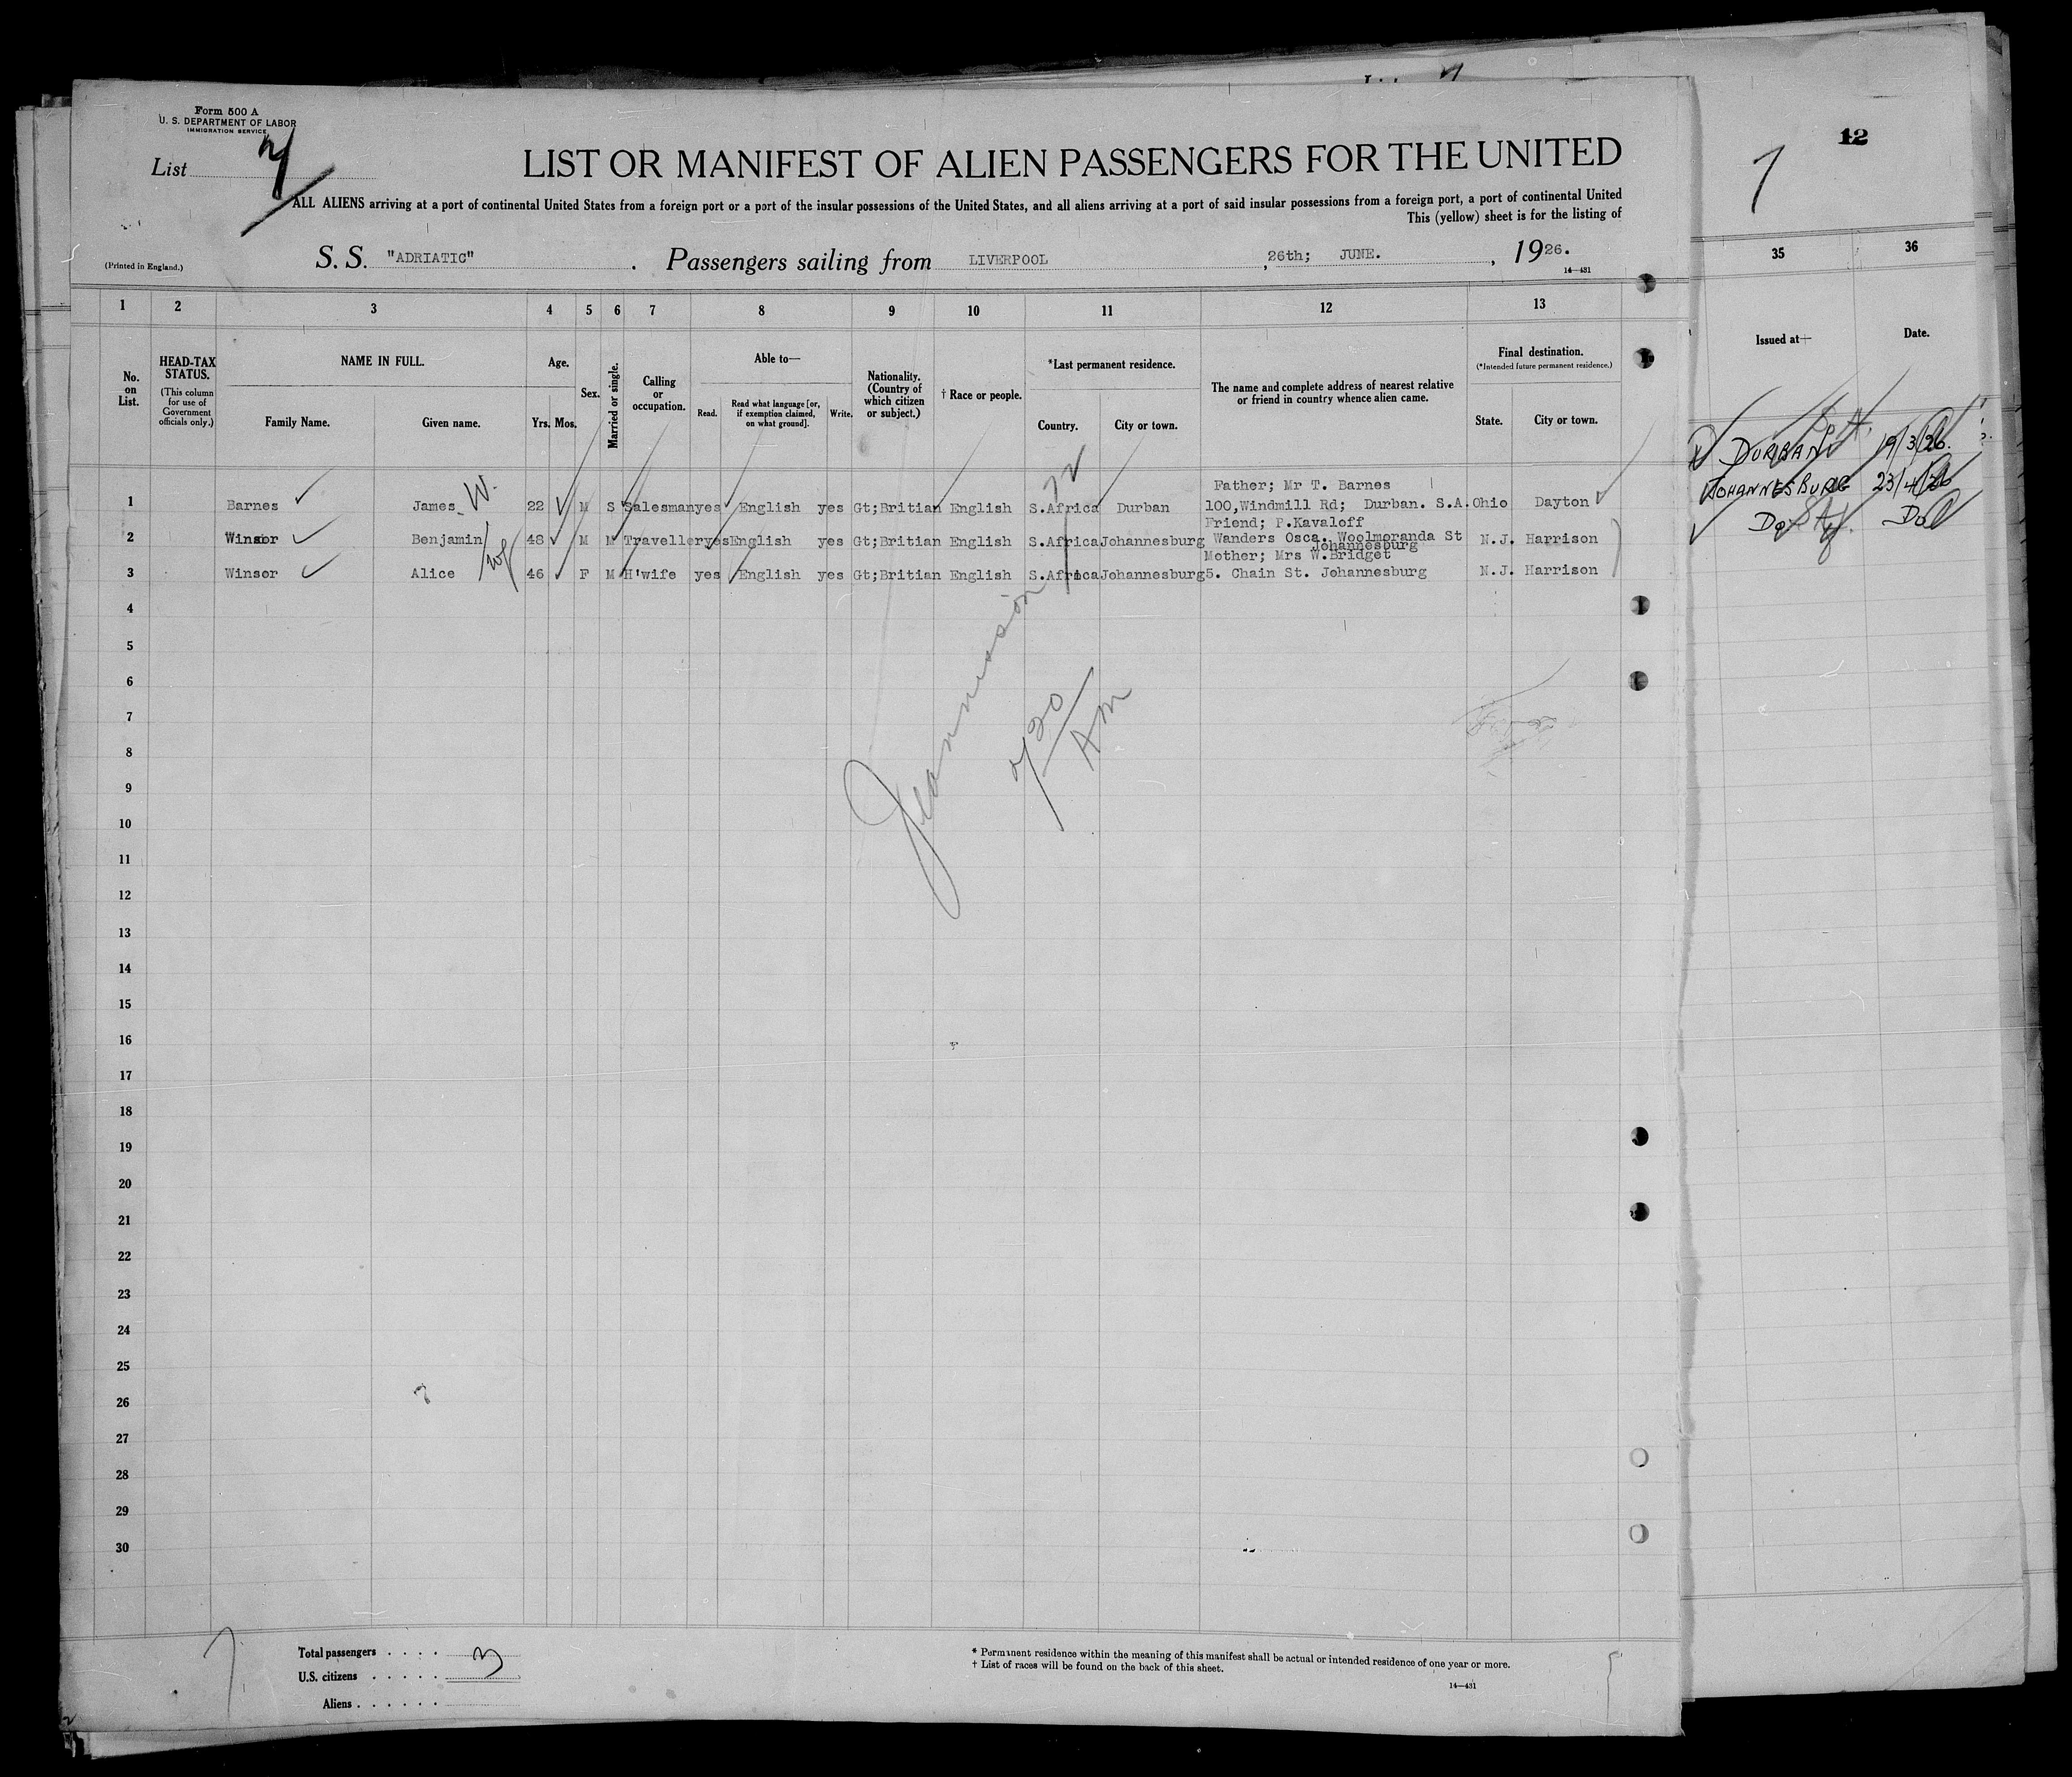 Form 500 A
U. S. DEPARTMENT OF LABOR
IMMIGRATION SERVICE
List
LIST OR MANIFEST OF ALIEN PASSENGERS FOR THE UNITED
ALL ALIENS arriving at a port of continental United States from a foreign port or a port of the insular possessions of the United States, and all aliens arriving at a port of said insular possessions from a foreign port, a port of continental United
This (yellow) sheet is for the listing of
(Printed in England.)
S. S. "ADRIATIC" . Passengers sailing from LIVERPOOL , 26th; JUNE. , 1926.
14—431
1 2 3 4 5 6 7 8 9 10 11 12 13
No. on List.
HEAD-TAX STATUS.
(This column for use of Government officials only.)
NAME IN FULL.
Family Name. Given name.
Age.
Yrs. Mos.
Sex.
Married or single.
Calling or occupation.
Able to—
Read. Read what language [or, if exemption claimed, on what ground]. Write.
Nationality. (Country of which citizen or subject.)
† Race or people.
*Last permanent residence.
Country. City or town.
The name and complete address of nearest relative or friend in country whence alien came.
Final destination.
(*Intended future permanent residence.)
State. City or town.
Father; Mr T. Barnes
1 Barnes James W. 22 M S Salesman yes English yes Gt;Britian English S.Africa Durban 100,Windmill Rd; Durban. S.A. Ohio Dayton
Friend; P.Kavaloff
2 Winsor Benjamin 48 M M Traveller yes English yes Gt;Britian English S.Africa Johannesburg Wanders Osca. Woolmoranda St N.J. Harrison
Johannesburg
Mother; Mrs W.Bridget
3 Winsor Alice 46 F M H'wife yes English yes Gt;Britian English S.Africa Johannesburg 5. Chain St. Johannesburg N.J. Harrison
4
5
6
7
8
9
10
11
12
13
14
15
16
17
18
19
20
21
22
23
24
25
26
27
28
29
30
730
AM
Total passengers . . . . 3
U.S. citizens . . . . .
Aliens . . . . . .
* Permanent residence within the meaning of this manifest shall be actual or intended residence of one year or more.
† List of races will be found on the back of this sheet.
14—431
7
12
35 36
Issued at— Date.
DURBAN 19/3/26.
JOHANNESBURG 23/4/26
Do Do